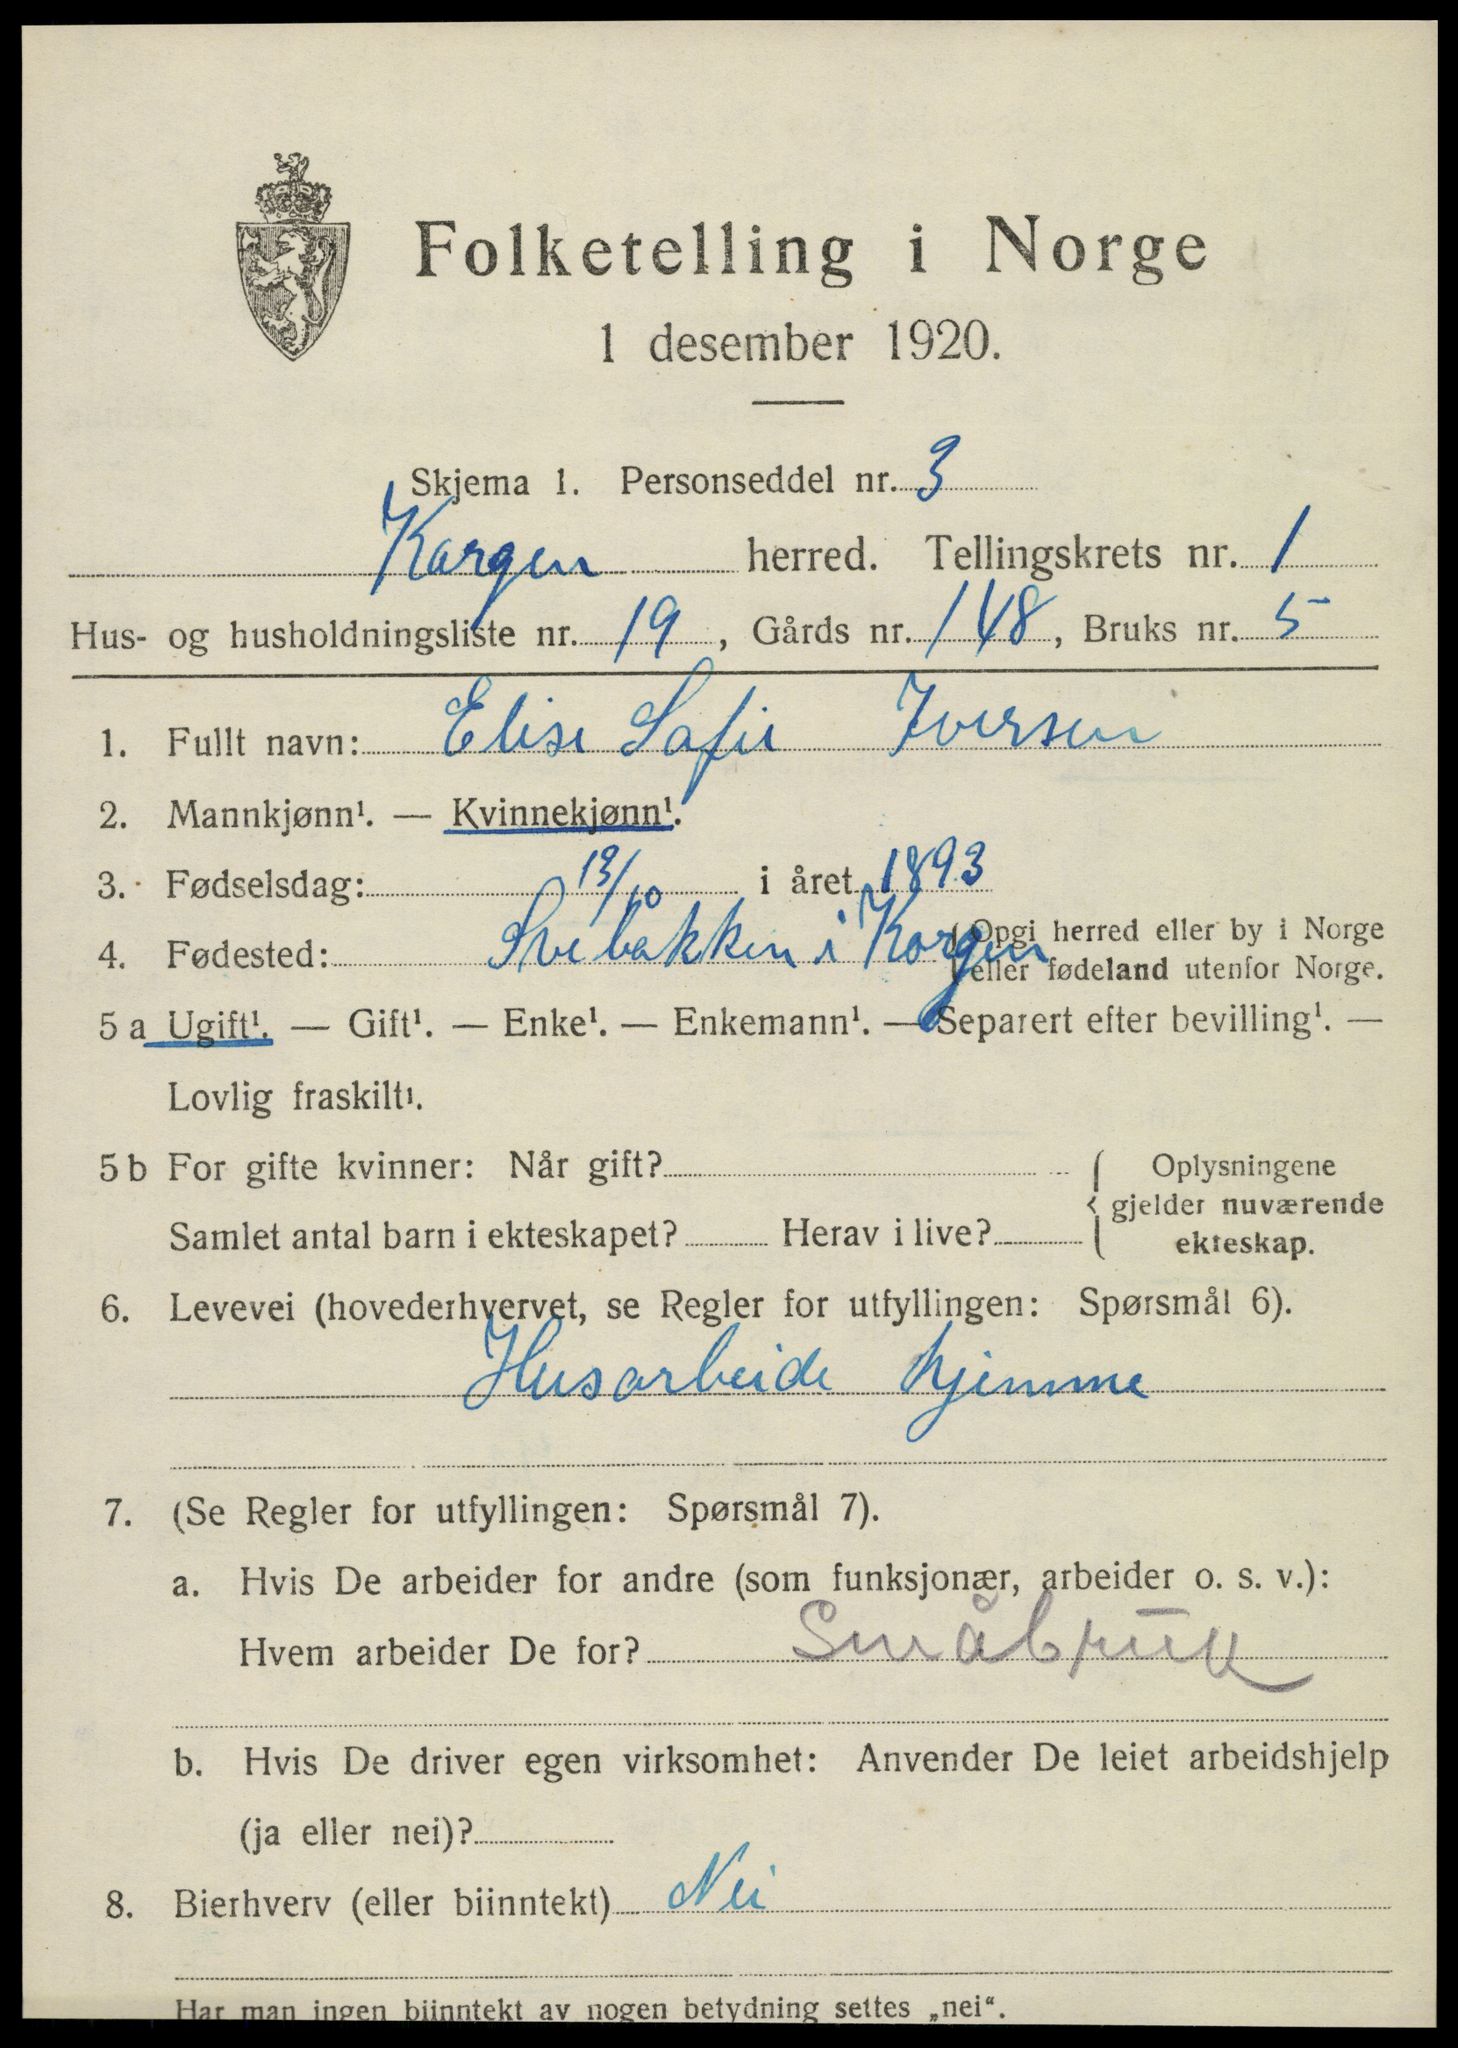 Folketelling i Norge
1 desember 1920.
Skjema 1. Personseddel nr. 3
Korgen herred. Tellingskrets nr. 1
Hus- og husholdningsliste nr. 19, Gårds nr. 148, Bruks nr. 5
1. Fullt navn: Elise Sofie Iversen
2. Mannkjønn¹. — Kvinnekjønn¹.
3. Fødselsdag: 13/10 i året 1893
4. Fødested: Svebakken i Korgen (Opgi herred eller by i Norge
eller fødeland utenfor Norge.
5 a Ugift¹. — Gift¹. — Enke¹. — Enkemann¹. — Separert efter bevilling¹. —
Lovlig fraskilt¹.
5 b For gifte kvinner: Når gift? Oplysningene
gjelder nuværende
Samlet antal barn i ekteskapet? Herav i live? ekteskap.
6. Levevei (hovederhvervet, se Regler for utfyllingen: Spørsmål 6).
Husarbeide hjemme
7. (Se Regler for utfyllingen: Spørsmål 7).
a. Hvis De arbeider for andre (som funksjonær, arbeider o. s. v.):
Hvem arbeider De for? Småbruk
b. Hvis De driver egen virksomhet: Anvender De leiet arbeidshjelp
(ja eller nei)?
8. Bierhverv (eller biinntekt) Nei
Har man ingen biinntekt av nogen betydning settes „nei“.